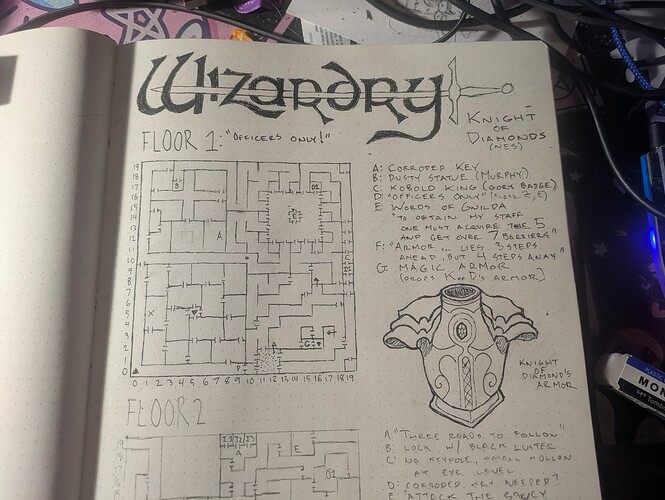 Wizardry
KNIGHT
OF
DIAMONDS
(NES)
FLOOR 1: "OFFICERS ONLY!"
A: CORRODED KEY
B: DUSTY STATUE (MURPHY)
C: KOBOLD KING (GORY BADGE)
D: "OFFICERS ONLY"
E: WORDS OF GNILDA
"TO OBTAIN MY STAFF
ONE MUST ACQUIRE THE 5
AND GET OVER 7 BARRIERS"
F: "ARMOR ... LIES 3 STEPS
AHEAD, BUT 4 STEPS AWAY"
G: MAGIC ARMOR
[DROPS K OF D'S ARMOR]
19
18
17
16
15
14
13
12
11
10
9
8
7
6
5
4
3
2
1
0
B
A
E
C
G
D
0 1 2 3 4 5 6 7 8 9 10 11 12 13 14 15 16 17 18 19
KNIGHT
OF
DIAMOND'S
ARMOR
FLOOR 2
19
18
17
16
A
E
A: "THREE ROADS TO FOLLOW"
B: LOCK W/ BLACK LUSTER
C: NO KEYHOLE, SMALL HOLLOW
AT EYE LEVEL
D: CORRODED KEY NEEDED?
E: "ATTACK THE
MONO